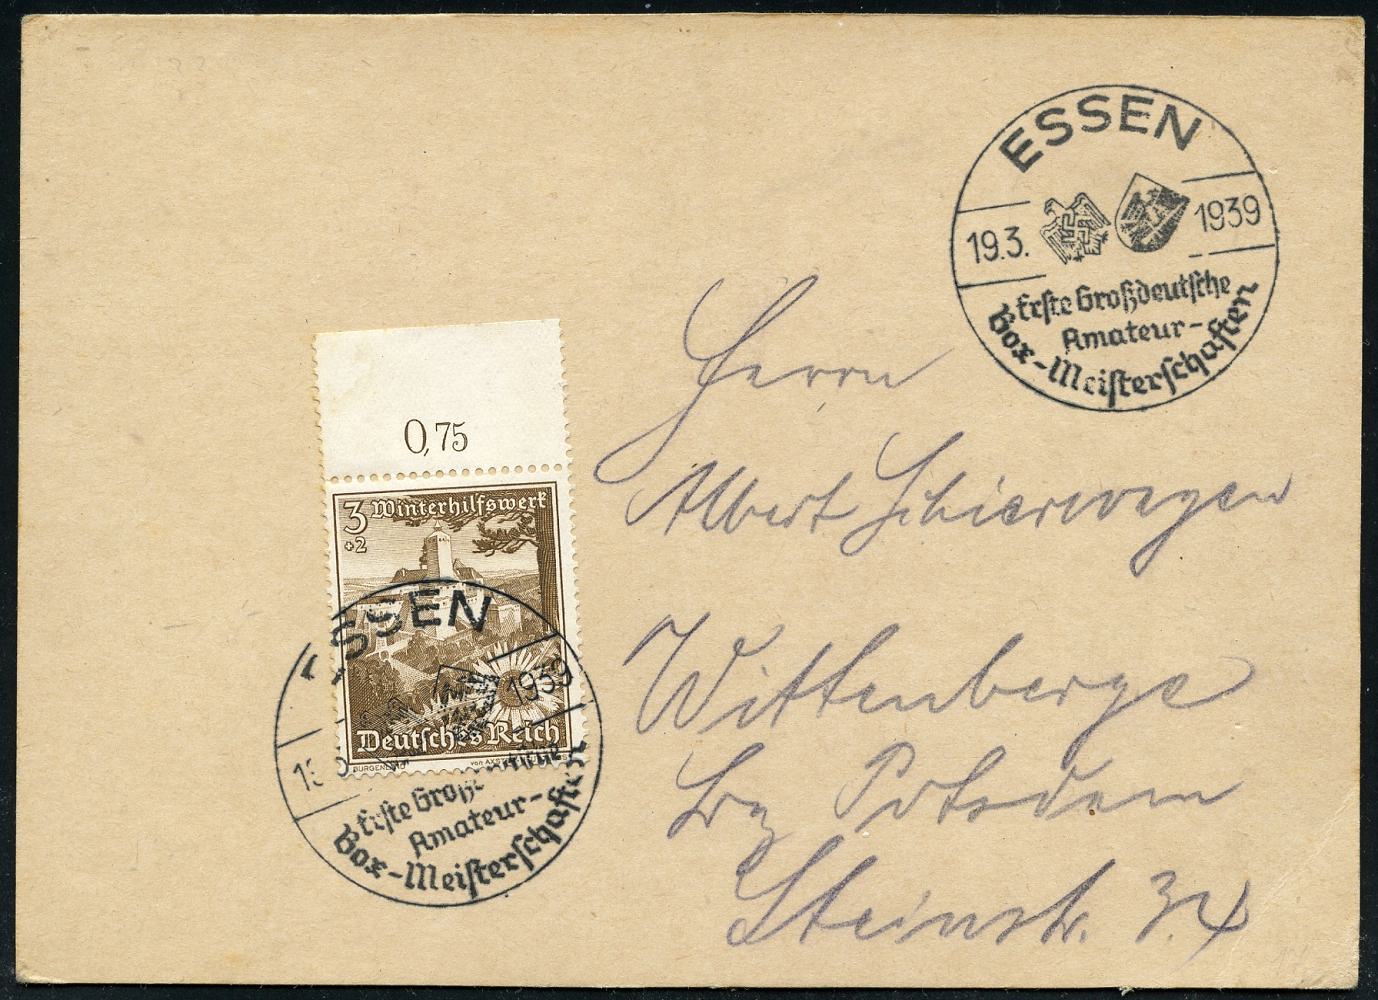 ESSEN
19.3. 1939
Erste Großdeutsche
Amateur-
Box-Meisterschaften
Herrn
Albert Schierwegen
Wittenberge
Bz Potsdam
Steinstr. 34
0,75
3 Winterhilfswerk
+2
ESSEN
1939
Deutsches Reich
BURGENLAND
VON AXSTER
Erste Groß
Amateur-
Box-Meisterschaften